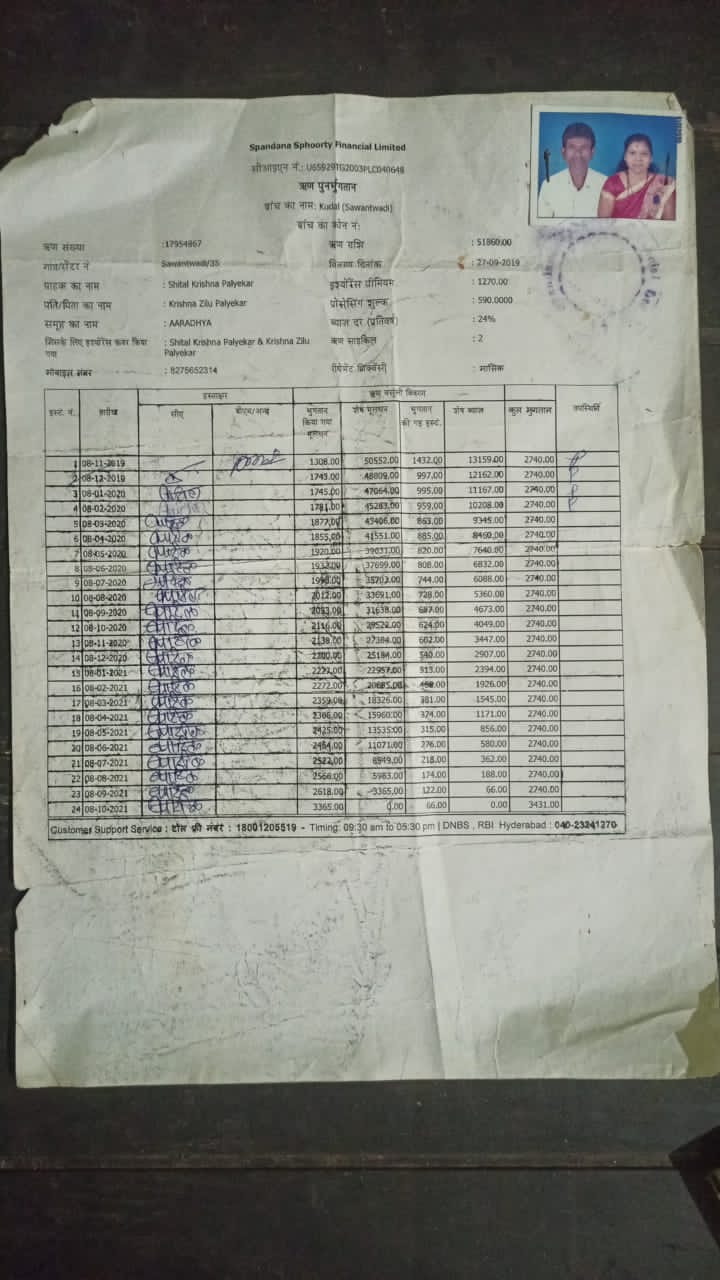 Spandana Sphoorty Financial Limited
सीआइएन नं.: U65929TG2003PLC040648
ऋण पुनर्भुगतान
ब्रांच का नाम: Kudal (Sawantwadi)
ब्रांच का फोन नं:
ऋण संख्या :17954867 ऋण राशि : 51860.00
गांव/सेंटर नं Sawantwadi/35 वितरण दिनांक : 27-09-2019
ग्राहक का नाम : Shital Krishna Palyekar इंश्योरेंस प्रीमियम : 1270.00
पति/पिता का नाम : Krishna Zilu Palyekar प्रोसेसिंग शुल्क : 590.0000
समूह का नाम : AARADHYA ब्याज दर (प्रतिवर्ष) : 24%
जिसके लिए इंश्योरेंस कवर किया गया : Shital Krishna Palyekar & Krishna Zilu Palyekar ऋण साइकिल : 2
मोबाइल नंबर : 8275652314 रीपेमेंट फ्रिक्वेंसी : मासिक
हस्ताक्षर ऋण वसूली विवरण
इंस्ट. नं. तारीख सीए बीएम/अन्य भुगतान किया गया मूलधन शेष मूलधन भुगतान की गइ इंस्टं. शेष ब्याज कुल भुगतान उपस्थिति
1 08-11-2019 1308.00 50552.00 1432.00 13159.00 2740.00 P
2 08-12-2019 1743.00 48809.00 997.00 12162.00 2740.00 P
3 08-01-2020 1745.00 47064.00 995.00 11167.00 2740.00 P
4 08-02-2020 1781.00 45283.00 959.00 10208.00 2740.00 P
5 08-03-2020 1877.00 43406.00 863.00 9345.00 2740.00
6 08-04-2020 1855.00 41551.00 885.00 8460.00 2740.00
7 08-05-2020 1920.00 39631.00 820.00 7640.00 2740.00
8 08-06-2020 1932.00 37699.00 808.00 6832.00 2740.00
9 08-07-2020 1996.00 35703.00 744.00 6088.00 2740.00
10 08-08-2020 2012.00 33691.00 728.00 5360.00 2740.00
11 08-09-2020 2053.00 31638.00 687.00 4673.00 2740.00
12 08-10-2020 2116.00 29522.00 624.00 4049.00 2740.00
13 08-11-2020 2138.00 27384.00 602.00 3447.00 2740.00
14 08-12-2020 2200.00 25184.00 540.00 2907.00 2740.00
15 08-01-2021 2227.00 22957.00 513.00 2394.00 2740.00
16 08-02-2021 2272.00 20685.00 468.00 1926.00 2740.00
17 08-03-2021 2359.00 18326.00 381.00 1545.00 2740.00
18 08-04-2021 2366.00 15960.00 374.00 1171.00 2740.00
19 08-05-2021 2425.00 13535.00 315.00 856.00 2740.00
20 08-06-2021 2464.00 11071.00 276.00 580.00 2740.00
21 08-07-2021 2522.00 8549.00 218.00 362.00 2740.00
22 08-08-2021 2566.00 5983.00 174.00 188.00 2740.00
23 08-09-2021 2618.00 3365.00 122.00 66.00 2740.00
24 08-10-2021 3365.00 0.00 66.00 0.00 3431.00
Customer Support Service : टोल फ्री नंबर : 18001205519 - Timing: 09:30 am to 05:30 pm | DNBS , RBI Hyderabad : 040-23241270